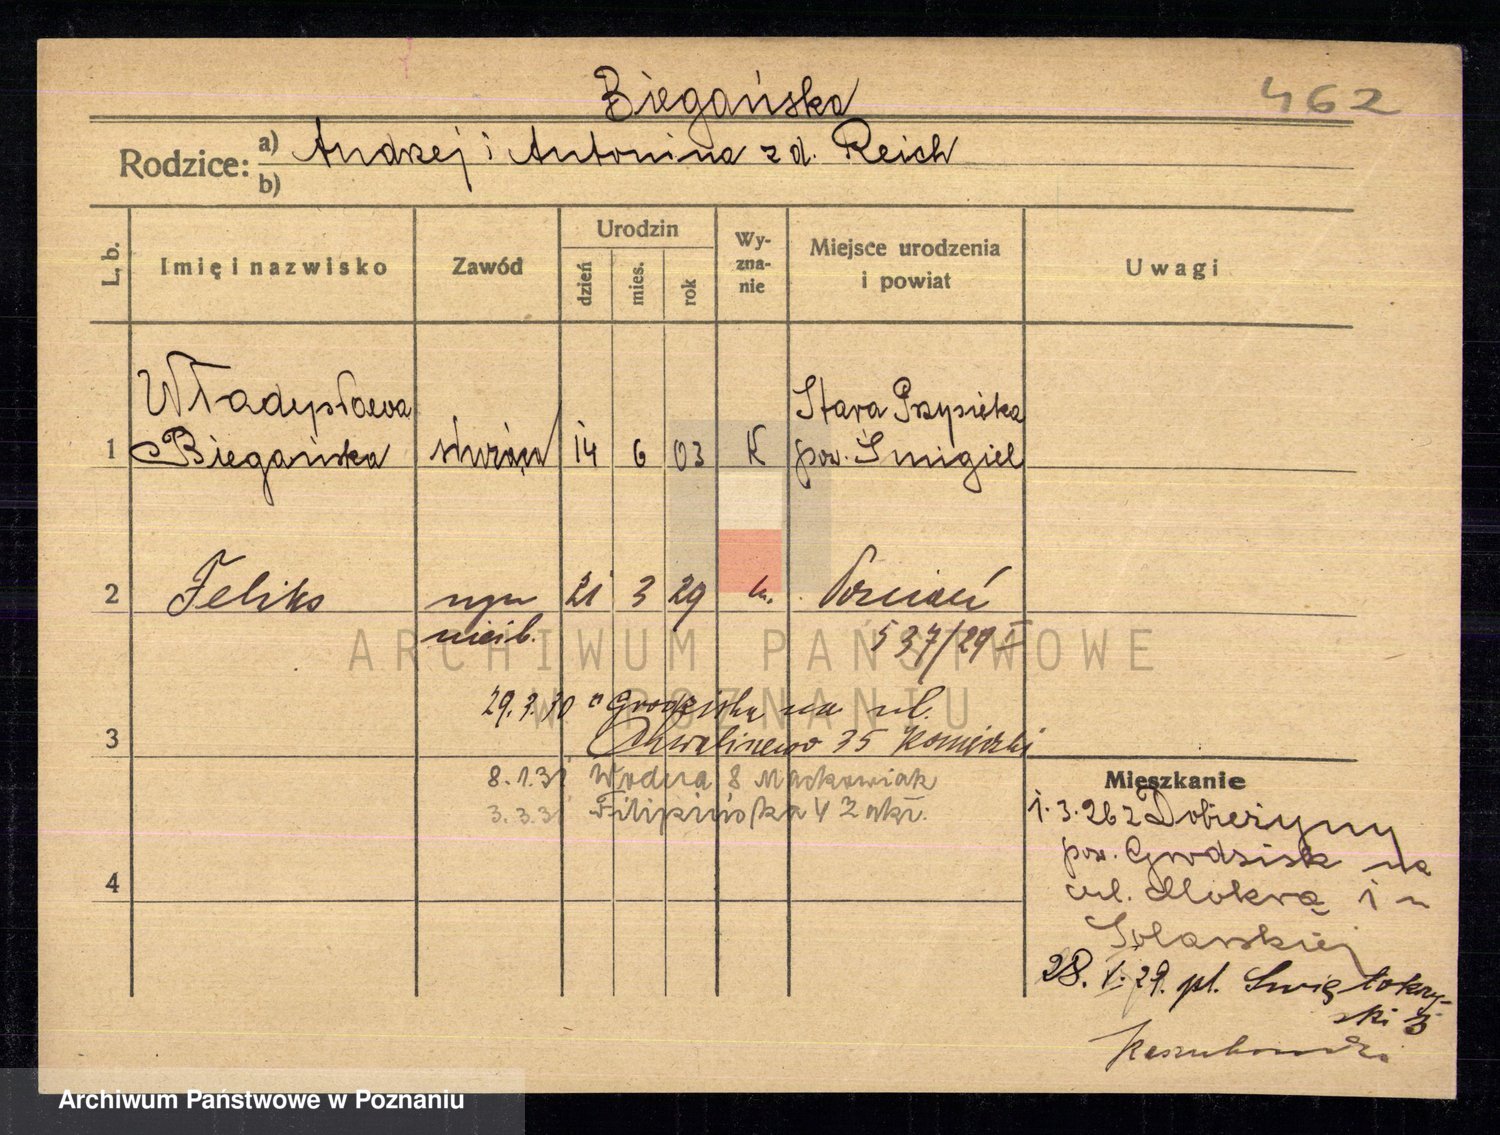 Biegańska
462
Rodzice:
a) Andrzej i Antonina z d. Reich
b)
L. b.
Imię i nazwisko
Zawód
Urodzin
dzień
mies.
rok
Wy-
zna-
nie
Miejsce urodzenia
i powiat
Uwagi
Władysława
Stara Przysieka
1 Biegańska służąca 14 6 03 K pow. Śmigiel
2 Feliks syn 21 3 29 k. Poznań
nieśl. 537/29 I
ARCHIWUM PAŃSTWOWE
W POZNANIU
29.3.30 z Grodziska na ul.
3 Chwaliszewo 35
8.1.31 Wodna 8 Maćkowiak
3.3.31 Filipińska 4 Żak
4
Mieszkanie
1.3.26 z Dobieżyny
pow. Grodzisk na
ul. Mokrą 1 u
Solarskiej
28.V.29. pl. Świętokrzy-
ski 3
Archiwum Państwowe w Poznaniu